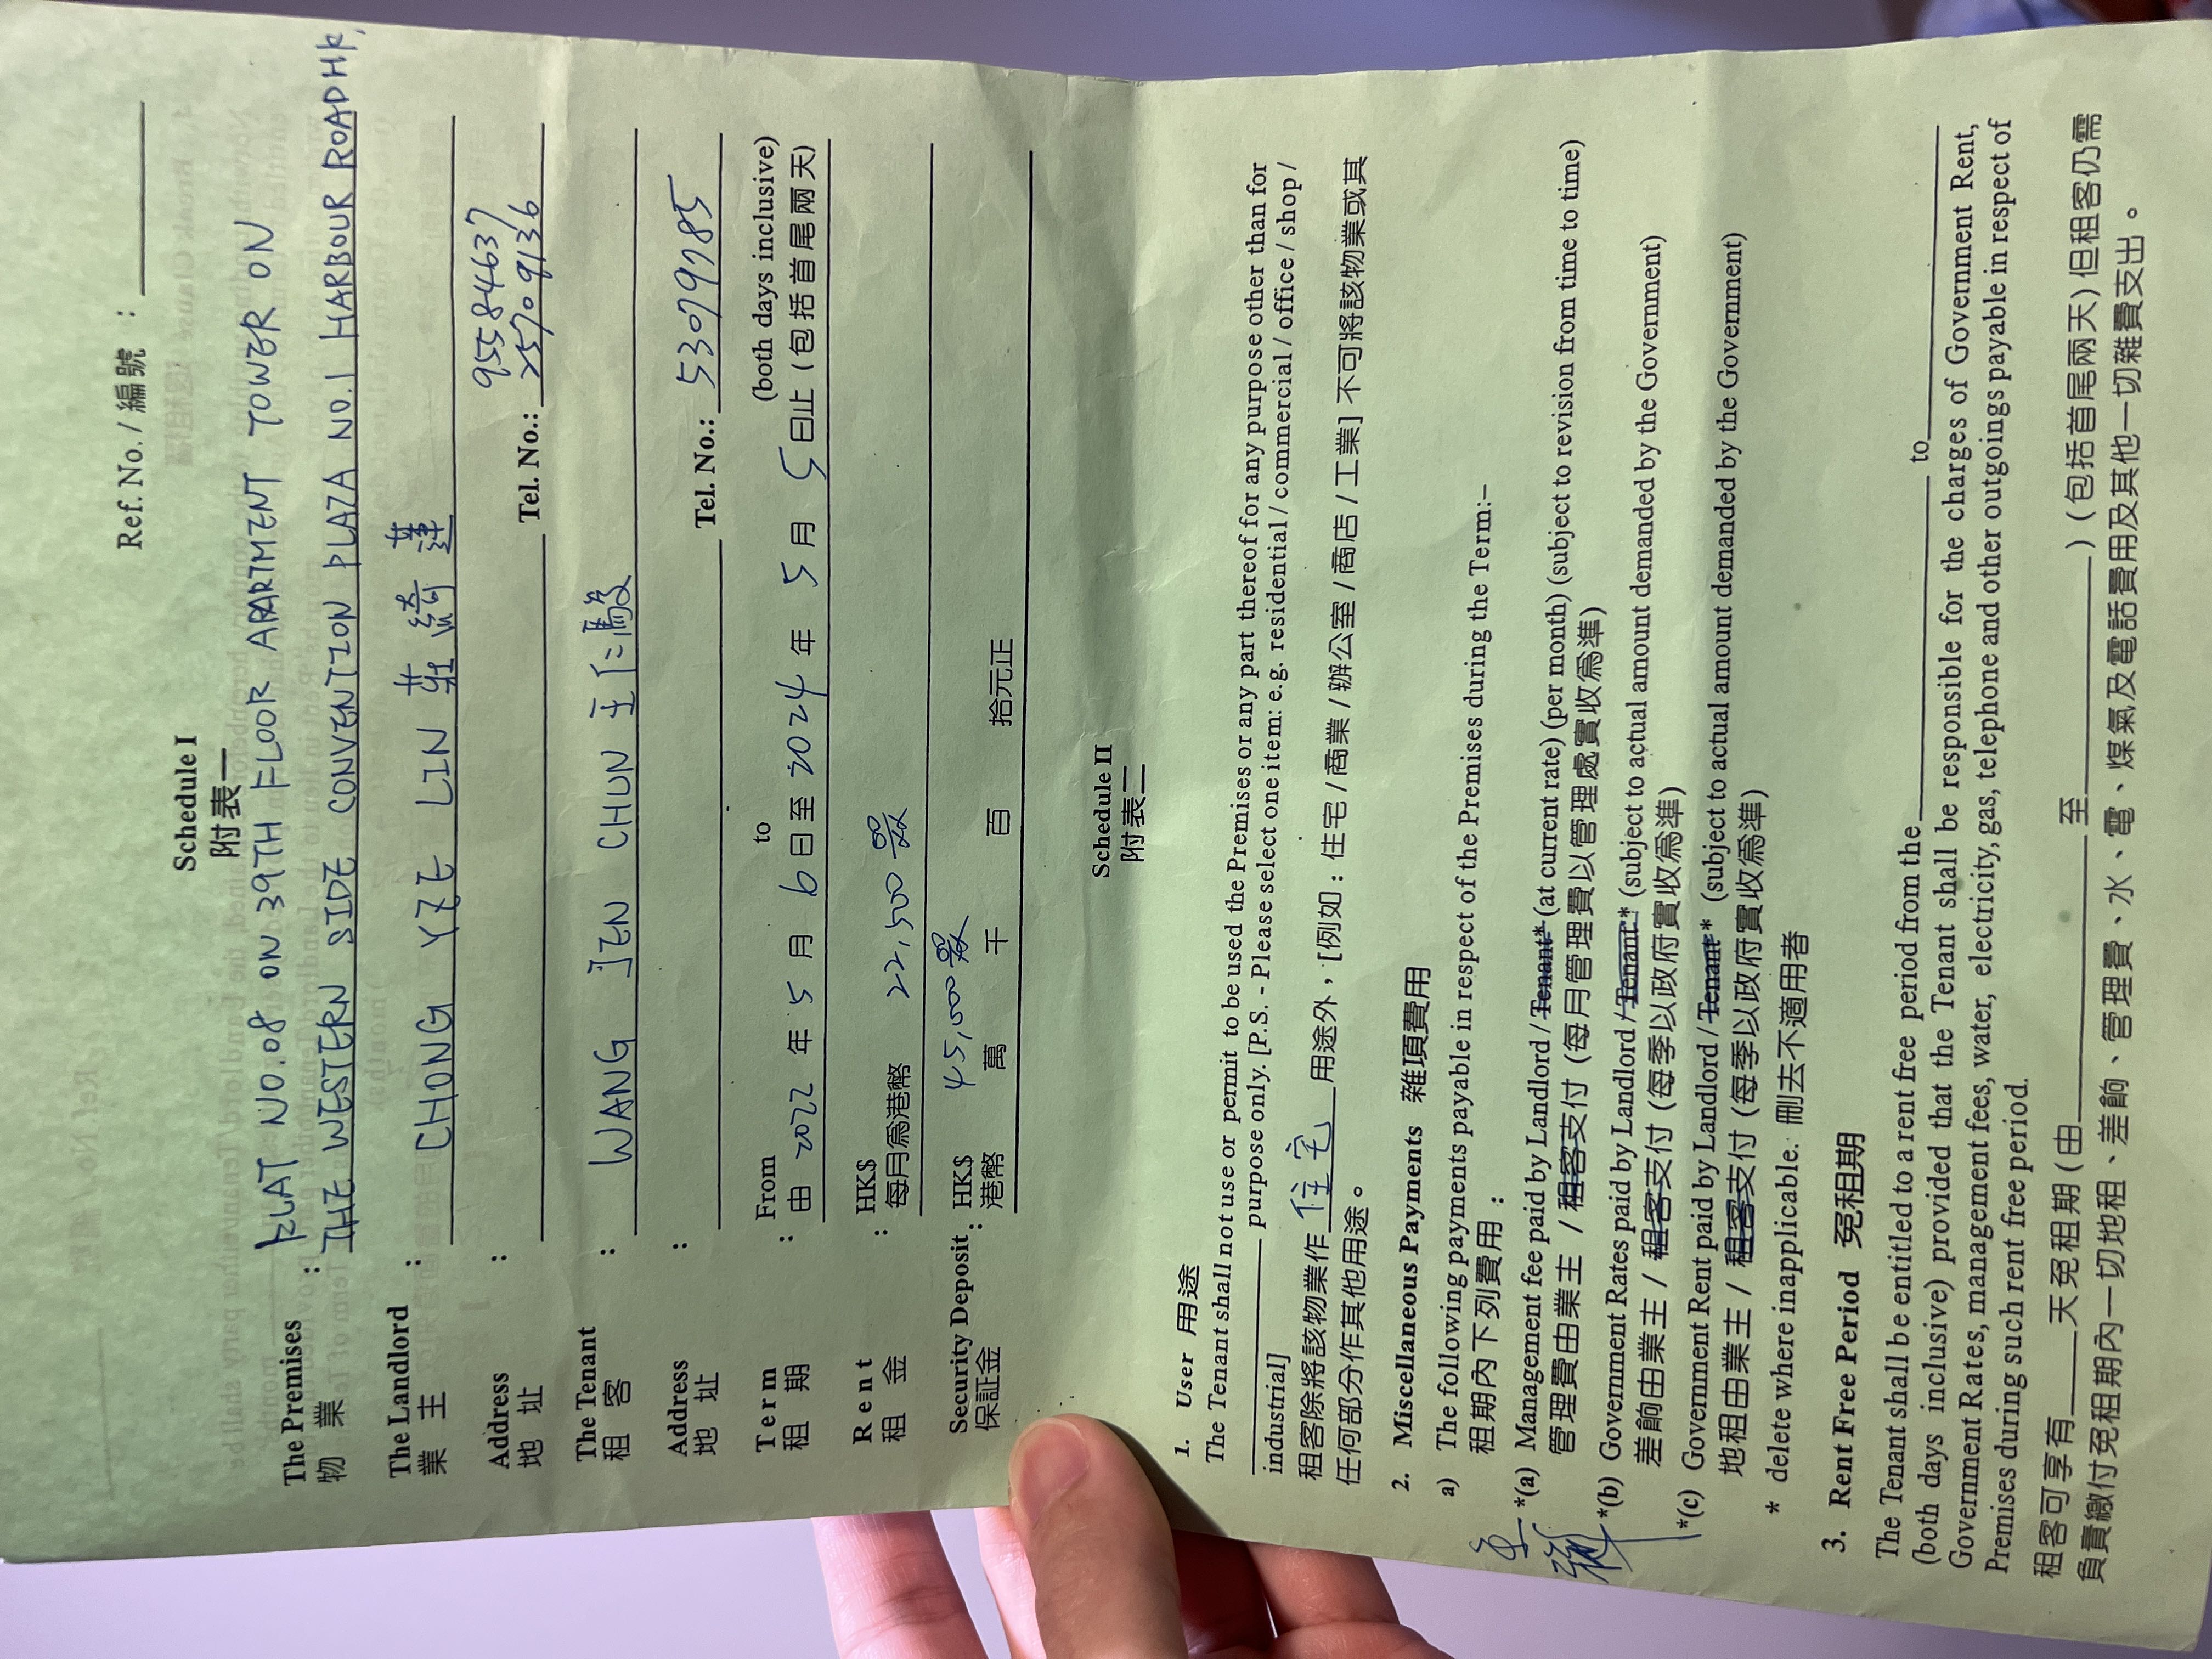 Ref. No. / 編號 :
Schedule I
附表一
The Premises : FLAT NO.08 ON 39TH FLOOR APARTMENT TOWER ON
物業 THE WESTERN SIDE CONVENTION PLAZA NO.1 HARBOUR ROAD HK,
The Landlord : CHONG YZE LIN 莊綺蓮
業主
Address : 95584637
地址 Tel. No.: 25709136
The Tenant : WANG JEN CHUN 王仁駿
租客
Address : Tel. No.: 53079785
地址
Term : From to (both days inclusive)
租期 由 2022 年 5 月 6 日至 2024 年 5 月 5 日止 (包括首尾兩天)
Rent : HK$
租金 每月爲港幣 22,500
Security Deposit : HK$ 45,000
保証金 港幣 萬 千 百 拾元正
Schedule II
附表二
1. User 用途
The Tenant shall not use or permit to be used the Premises or any part thereof for any purpose other than for
purpose only. [P.S. - Please select one item: e.g. residential / commercial / office / shop /
industrial]
租客除將該物業作 住宅 用途外，[例如 : 住宅 / 商業 / 辦公室 / 商店 / 工業] 不可將該物業或其
任何部分作其他用途。
2. Miscellaneous Payments 雜項費用
a) The following payments payable in respect of the Premises during the Term:–
租期內下列費用 :
*(a) Management fee paid by Landlord / Tenant* (at current rate) (per month) (subject to revision from time to time)
管理費由業主 / 租客支付 (每月管理費以管理處實收爲準)
*(b) Government Rates paid by Landlord / Tenant* (subject to actual amount demanded by the Government)
差餉由業主 / 租客支付 (每季以政府實收爲準)
*(c) Government Rent paid by Landlord / Tenant* (subject to actual amount demanded by the Government)
地租由業主 / 租客支付 (每季以政府實收爲準)
* delete where inapplicable. 刪去不適用者
3. Rent Free Period 免租期
The Tenant shall be entitled to a rent free period from the to
(both days inclusive) provided that the Tenant shall be responsible for the charges of Government Rent,
Government Rates, management fees, water, electricity, gas, telephone and other outgoings payable in respect of
Premises during such rent free period.
租客可享有 天免租期 (由 至 ) (包括首尾兩天) 但租客仍需
負責繳付免租期內一切地租、差餉、管理費、水、電、煤氣及電話費用及其他一切雜費支出。